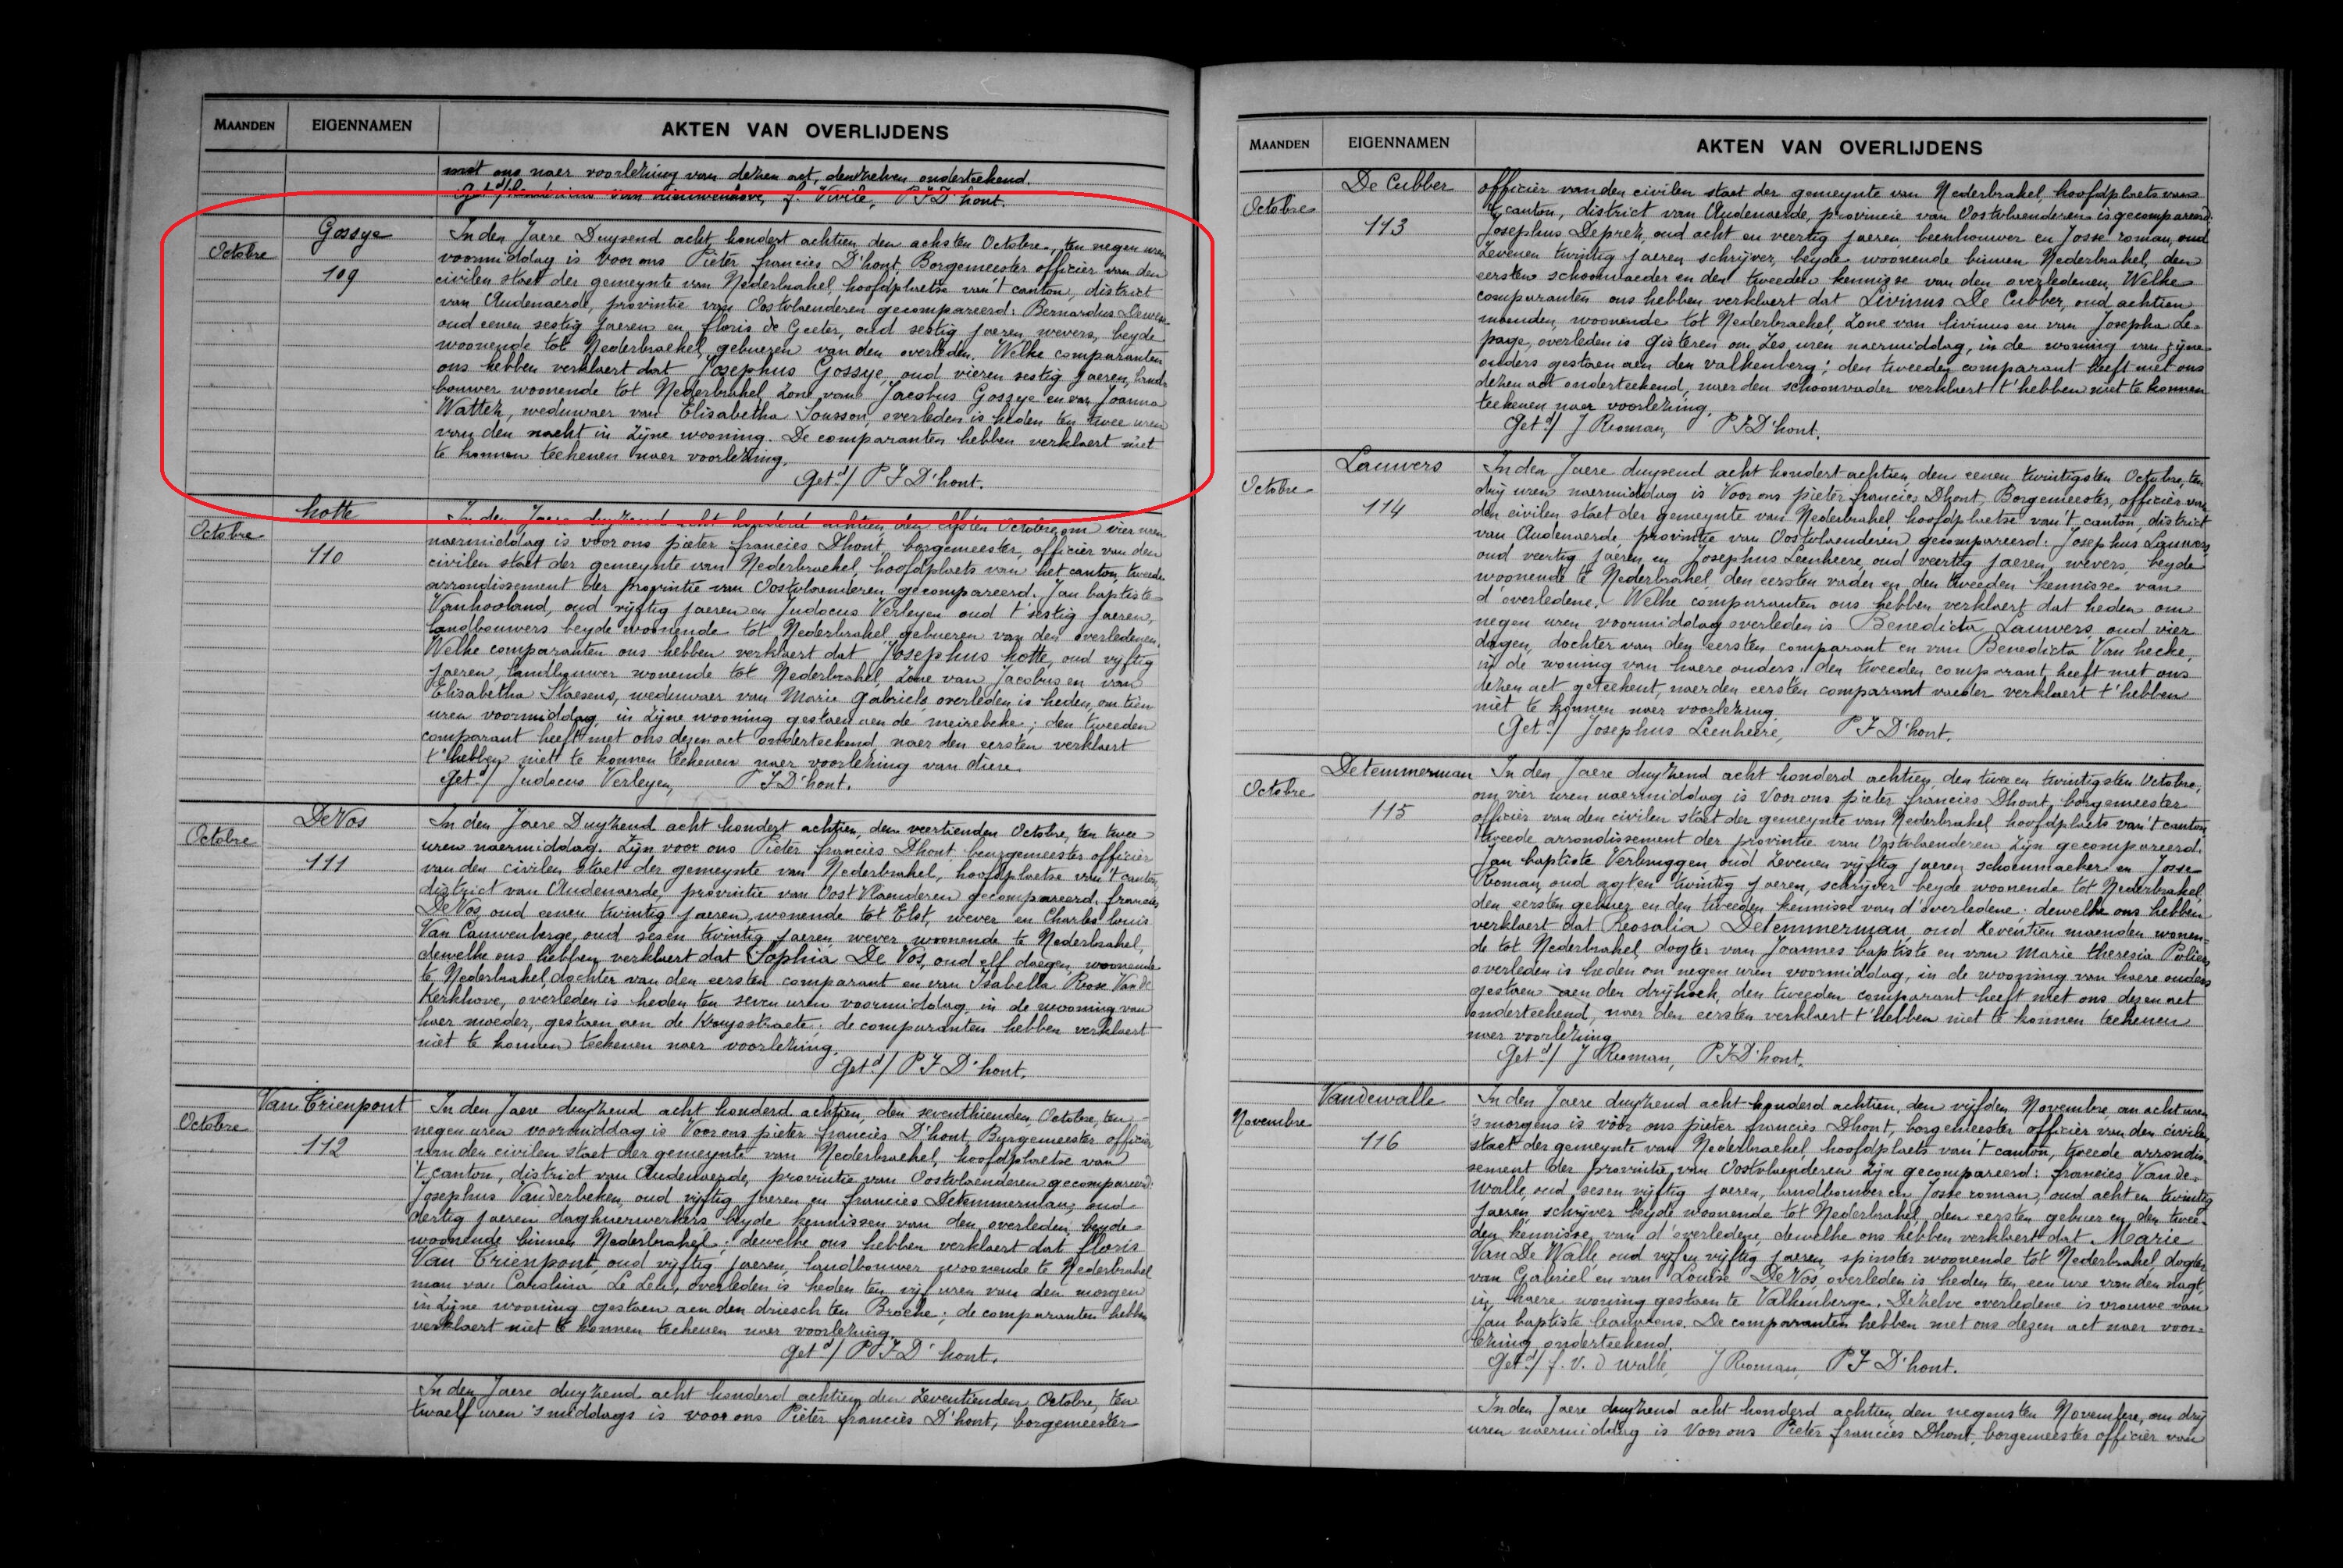 MAANDEN EIGENNAMEN AKTEN VAN OVERLIJDENS
met ons naer voorlezing van dezen act, denzelven onderteekend.
Get.d/ van nieuwenhove, f. Vivile, P F D'hont.
Octobre
Gossye
109
In den Jaere Duysend acht hondert achtien den achsten Octobre, ten negen uren
voormiddag is Voor ons Pieter francies D'hont, Borgemeester officier van den
civilen staet der gemeynte van Nederbrakel, hoofdplaetse van 't canton, district
van Audenaerde, provintie van Oostvlaenderen gecompareerd: Bernardus
oud eenen sestig jaeren en floris de Geeter, oud sestig jaeren, wevers, beyde
woonende tot Nederbraekel, gebueren van den overleden. Welke comparanten
ons hebben verklaert dat Josephus Gossye, oud vieren sestig jaeren, land-
bouwer woonende tot Nederbrakel, zone van Jacobus Gossye en van Joanna
Wattez, weduwaer van Elisabetha Sousson, overleden is heden ten twee uren
van den nacht in zijne wooning. De comparanten hebben verklaert niet
te konnen teekenen naer voorlezing.
Get.d/ P F D'hont.
Octobre
hotte
110
In den Jaere duyzend acht honderd achtien den elfsten Octobre, om vier uren
naermiddag is voor ons pieter francies Dhont borgemeester, officier van den
civilen staet der gemeynte van Nederbraekel, hoofdplaets van het canton, tweede
arrondissement der provintie van Oostvlaenderen gecompareerd. Jan baptiste
Vanhooland, oud vijftig jaeren en Judocus Verleyen oud t'sestig jaeren,
landbouwers beyde woonende tot Nederbrakel gebueren van den overledenen.
Welke comparanten ons hebben verklaert dat Josephus hotte, oud vijftig
jaeren, landbouwer wonende tot Nederbrakel, zone van Jacobus en van
Elisabetha Staesens, weduwaer van Marie Gabriels overleden is heden, om tien
uren voormiddag, in zijne wooning gestaen aen de meirebeke; den tweeden
comparant heeft met ons dezen act onderteekend, naer den eersten verklaert
t'hebben niet te konnen teekenen naer voorlezing van diere.
Get.d/ Judocus Verleyen, P F D'hont.
Octobre
De Vos
111
In den Jaere Duyzend acht hondert achtien, den veertienden Octobre, ten twee
uren naermiddag. Zijn voor ons Pieter francies Dhont burgemeester officier
van den civilen staet der gemeynte van Nederbrakel, hoofdplaetse van 't canton,
district van Audenaerde, provintie van Oost Vlaenderen gecompareerd, francies
De Vos, oud eenen twintig jaeren, wonende tot Elst, wever en Charles louis
Van Cauwenberge, oud sesen twintig jaeren, wever woonende te Nederbrakel,
dewelke ons hebben verklaert dat Sophia De Vos, oud elf daegen, woonende
te Nederbrakel, dochter van den eersten comparant en van Isabella Rose Van de
Kerkhove, overleden is heden ten seven uren voormiddag, in de wooning van
haer moeder, gestaen aen de Kruysstraete; de comparanten hebben verklaert
niet te konnen teekenen naer voorlezing.
Get.d/ P F D'hont.
Octobre
Van Trienpont
112
In den Jaere duyzend acht honderd achtien, den seventhienden Octobre, ten
negen uren voormiddag is Voor ons pieter francies D'hont Burgemeester officier
van den civilen staet der gemeynte van Nederbraekel, hoofdplaetse van
't canton, district van Audenaerde, provintie van Oostvlaenderen gecompareerd:
Josephus Vanderbeken, oud vijftig jaeren en francies Detemmerman, oud
dertig jaeren daghuerwerkers beyde kennissen van den overleden, beyde
woonende binnen Nederbrakel; dewelke ons hebben verklaert dat floris
Van Trienpont, oud vijftig jaeren, landbouwer woonende te Nederbrakel
man van Carolina Le Leu, overleden is heden ten vijf uren van den morgen
in zijne wooning gestaen aen den driesch ten Broeke; de comparanten hebben
verklaert niet te konnen teekenen naer voorlezing.
Get.d/ P F D'hont.
In den Jaere duyzend acht honderd achtien den zeventienden Octobre, ten
twaelf uren 's middags is voor ons Pieter francies D'hont, borgemeester
MAANDEN EIGENNAMEN AKTEN VAN OVERLIJDENS
Octobre
De Cubber
113
officier van den civilen staet der gemeynte van Nederbrakel, hoofdplaets van
't canton, district van Audenaerde, provincie van Oostvlaenderen is gecompareerd:
Josephus Deprez, oud acht en veertig jaeren, beenhouwer en Josse roman, oud
zevenen twintig jaeren schrijver, beyde woonende binnen Nederbrakel, den
eersten schoonvaeder en den tweeden kennisse van den overledenen, Welke
comparanten ons hebben verklaert dat Livinus De Cubber, oud achtien
maenden, woonende tot Nederbraekel, zone van livinus en van Josepha Le-
page, overleden is gisteren om zes uren naermiddag, in de wooning van zijne
ouders gestaen aen den valkenberg; den tweeden comparant heeft met ons
dezen act onderteekend, naer den schoonvader verklaert t'hebben niet te konnen
teekenen naer voorlezing.
Get.d/ J Roman, P F D'hont.
Octobre
Lauwers
114
In den Jaere duysend acht hondert achtien, den eenen twintigsten Octobre, ten
drij uren naermiddag is Voor ons pieter francies Dhont, Borgemeester, officier van
den civilen staet der gemeynte van Nederbrakel, hoofdplaetse van 't canton, district
van Audenaerde, provintie van Oostvlaenderen gecompareerd: Josephus Lauwers,
oud veertig jaeren, en Josephus Leenheere, oud veertig jaeren, wevers, beyde
woonende te Nederbrakel, den eersten vader en den tweeden kennisse van
d'overledene. Welke comparanten ons hebben verklaert dat heden om
negen uren voormiddag overleden is Benedicta Lauwers, oud vier
dagen, dochter van den eersten comparant en van Benedicta Van hecke,
in de woning van haere ouders. den tweeden comparant heeft met ons
dezen act geteekent, naer den eersten comparant vaeder verklaert t'hebben
niet te konnen naer voorlezing.
Get.d/ Josephus Leenheere, P F D'hont.
Octobre
Detemmerman
115
In den Jaere duyzend acht honderd achtien, den twee en twintigsten Octobre,
om vier uren naermiddag is Voor ons pieter francies Dhont, borgemeester
officier van den civilen staet der gemeynte van Nederbrakel hoofdplaets van 't canton
tweede arrondissement der provintie van Oostvlaenderen zijn gecompareerd.
Jan baptiste Verbruggen, oud zevenen vijftig jaeren, schoenmaeker en Josse
Roman, oud agt en twintig jaeren, schrijver beyde woonende tot Nederbrakel,
den eersten gebuer en den tweeden kennisse van d'overledene; dewelke ons hebben
verklaert dat Rosalia Detemmerman, oud seventien maenden wonen-
de tot Nederbrakel, dogter van Joannes baptiste en van Marie theresia
overleden is heden om negen uren voormiddag, in de wooning van haere ouders
gestaen aen den drijhoek, den tweeden comparant heeft met ons dezen act
onderteekend, naer den eersten verklaert t'hebben niet te konnen teekenen
naer voorlezing
Get.d/ J Roman, P F D'hont.
Novembre
Vandewalle
116
In den Jaere duyzend acht honderd achtien, den vijfden Novembre, om acht uren
's morgens is voor ons pieter francies Dhont, borgemeester officier van den civilen
staet der gemeynte van Nederbraekel, hoofdplaets van 't canton, tweede arrondis-
sement der provintie van Oostvlaenderen zijn gecompareerd: francies Van de
Walle, oud sesen vijftig jaeren, landbouwer en Josse roman, oud acht en twintig
jaeren, schrijver beyde woonende tot Nederbrakel, den eersten gebuer en den twee-
den kennisse van d'overledene, dewelke ons hebben verklaert dat Marie
Van De Walle, oud vijf en vijftig jaeren, spinster woonende tot Nederbrakel, dogter
van Gabriel en van Louise De Vos, overleden is heden ten een ure van den nagt,
in haere woning gestaen te Valkenberge. Dezelve overledene is vrouwe van
Jan baptiste bauwens. De comparanten hebben met ons dezen act naer voor-
lezing onderteekend.
Get.d/ f. v. d walle, J Roman, P F D'hont.
In den Jaere duyzend acht honderd achtien, den negensten Novembre, om drij
uren naermiddag is Voor ons Pieter francies Dhont, borgemeester officier van